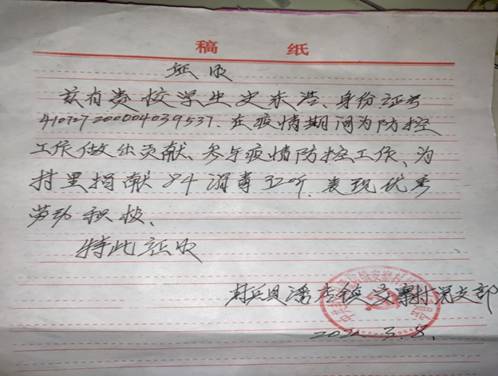 稿 纸
证明
兹有贵校学生史来浩、身份证号
410727200004039537.在疫情期间为防控
工作做出贡献、参与疫情防控工作、为
村里捐献84消毒卫听、表现优秀
劳动积极、
特此证明
封丘县潘店镇 村党支部
2021.3.8.